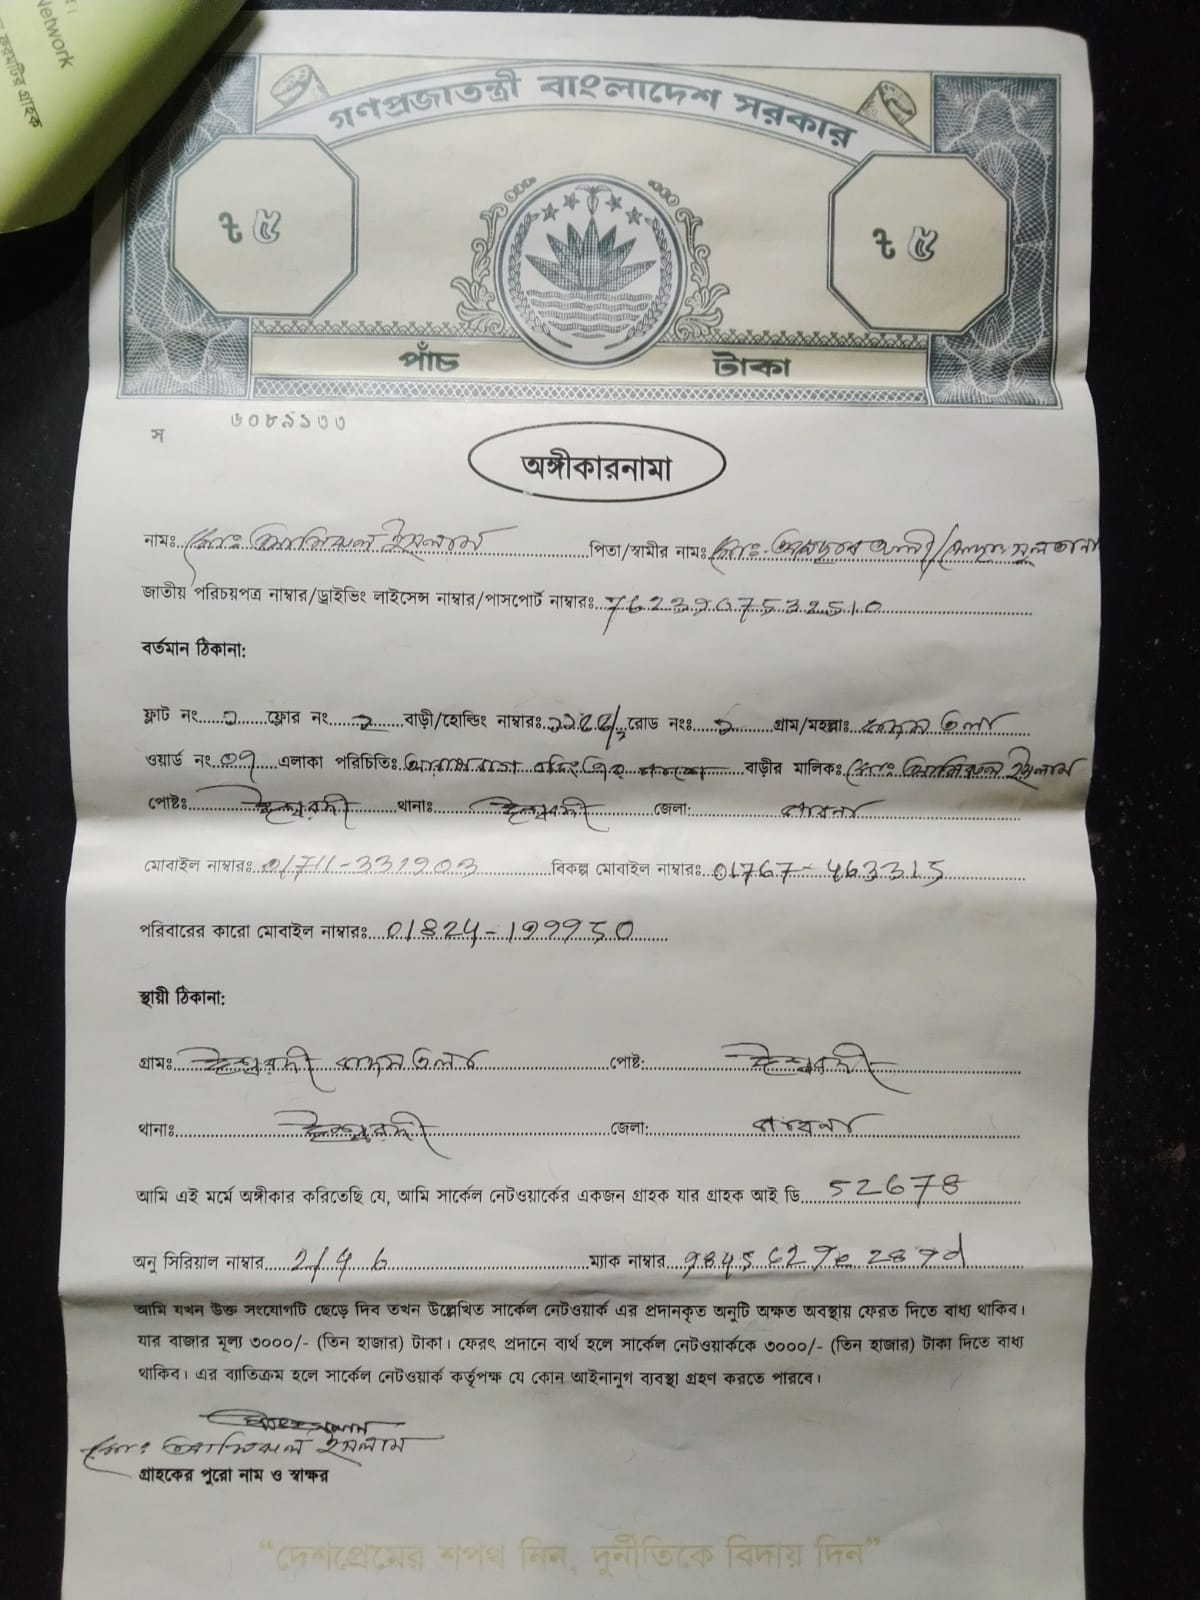 Network
ফরমটির গ্রাহক
গণপ্রজাতন্ত্রী বাংলাদেশ সরকার
৳ ৫
৳ ৫
পাঁচ টাকা
স ৬০৮৯১৩৩
অঙ্গীকারনামা
নামঃ মোঃ ইসলাম পিতা/স্বামীর নামঃ মোঃ আলী/মোছাঃ সুলতানা
জাতীয় পরিচয়পত্র নাম্বার/ড্রাইভিং লাইসেন্স নাম্বার/পাসপোর্ট নাম্বারঃ
বর্তমান ঠিকানা:
ফ্লাট নং ১ ফ্লোর নং ২ বাড়ী/হোল্ডিং নাম্বারঃ রোড নংঃ গ্রাম/মহল্লাঃ
ওয়ার্ড নং ০৭ এলাকা পরিচিতিঃ বাড়ীর মালিকঃ মোঃ ইসলাম
পোষ্টঃ ঈশ্বরদী থানাঃ ঈশ্বরদী জেলা: পাবনা
মোবাইল নাম্বারঃ 01711-331903 বিকল্প মোবাইল নাম্বারঃ 01767-463315
পরিবারের কারো মোবাইল নাম্বারঃ 01824-199950
স্থায়ী ঠিকানা:
গ্রামঃ ঈশ্বরদী পোষ্ট: ঈশ্বরদী
থানাঃ ঈশ্বরদী জেলা: পাবনা
আমি এই মর্মে অঙ্গীকার করিতেছি যে, আমি সার্কেল নেটওয়ার্কের একজন গ্রাহক যার গ্রাহক আই ডি 52678
অনু সিরিয়াল নাম্বার 2/4 6 ম্যাক নাম্বার
আমি যখন উক্ত সংযোগটি ছেড়ে দিব তখন উল্লেখিত সার্কেল নেটওয়ার্ক এর প্রদানকৃত অনুটি অক্ষত অবস্থায় ফেরত দিতে বাধ্য থাকিব।
যার বাজার মূল্য ৩০০০/- (তিন হাজার) টাকা। ফেরৎ প্রদানে ব্যর্থ হলে সার্কেল নেটওয়ার্ককে ৩০০০/- (তিন হাজার) টাকা দিতে বাধ্য
থাকিব। এর ব্যতিক্রম হলে সার্কেল নেটওয়ার্ক কর্তৃপক্ষ যে কোন আইনানুগ ব্যবস্থা গ্রহণ করতে পারবে।
মোঃ ইসলাম
গ্রাহকের পুরো নাম ও স্বাক্ষর
“দেশপ্রেমের শপথ নিন, দুর্নীতিকে বিদায় দিন”